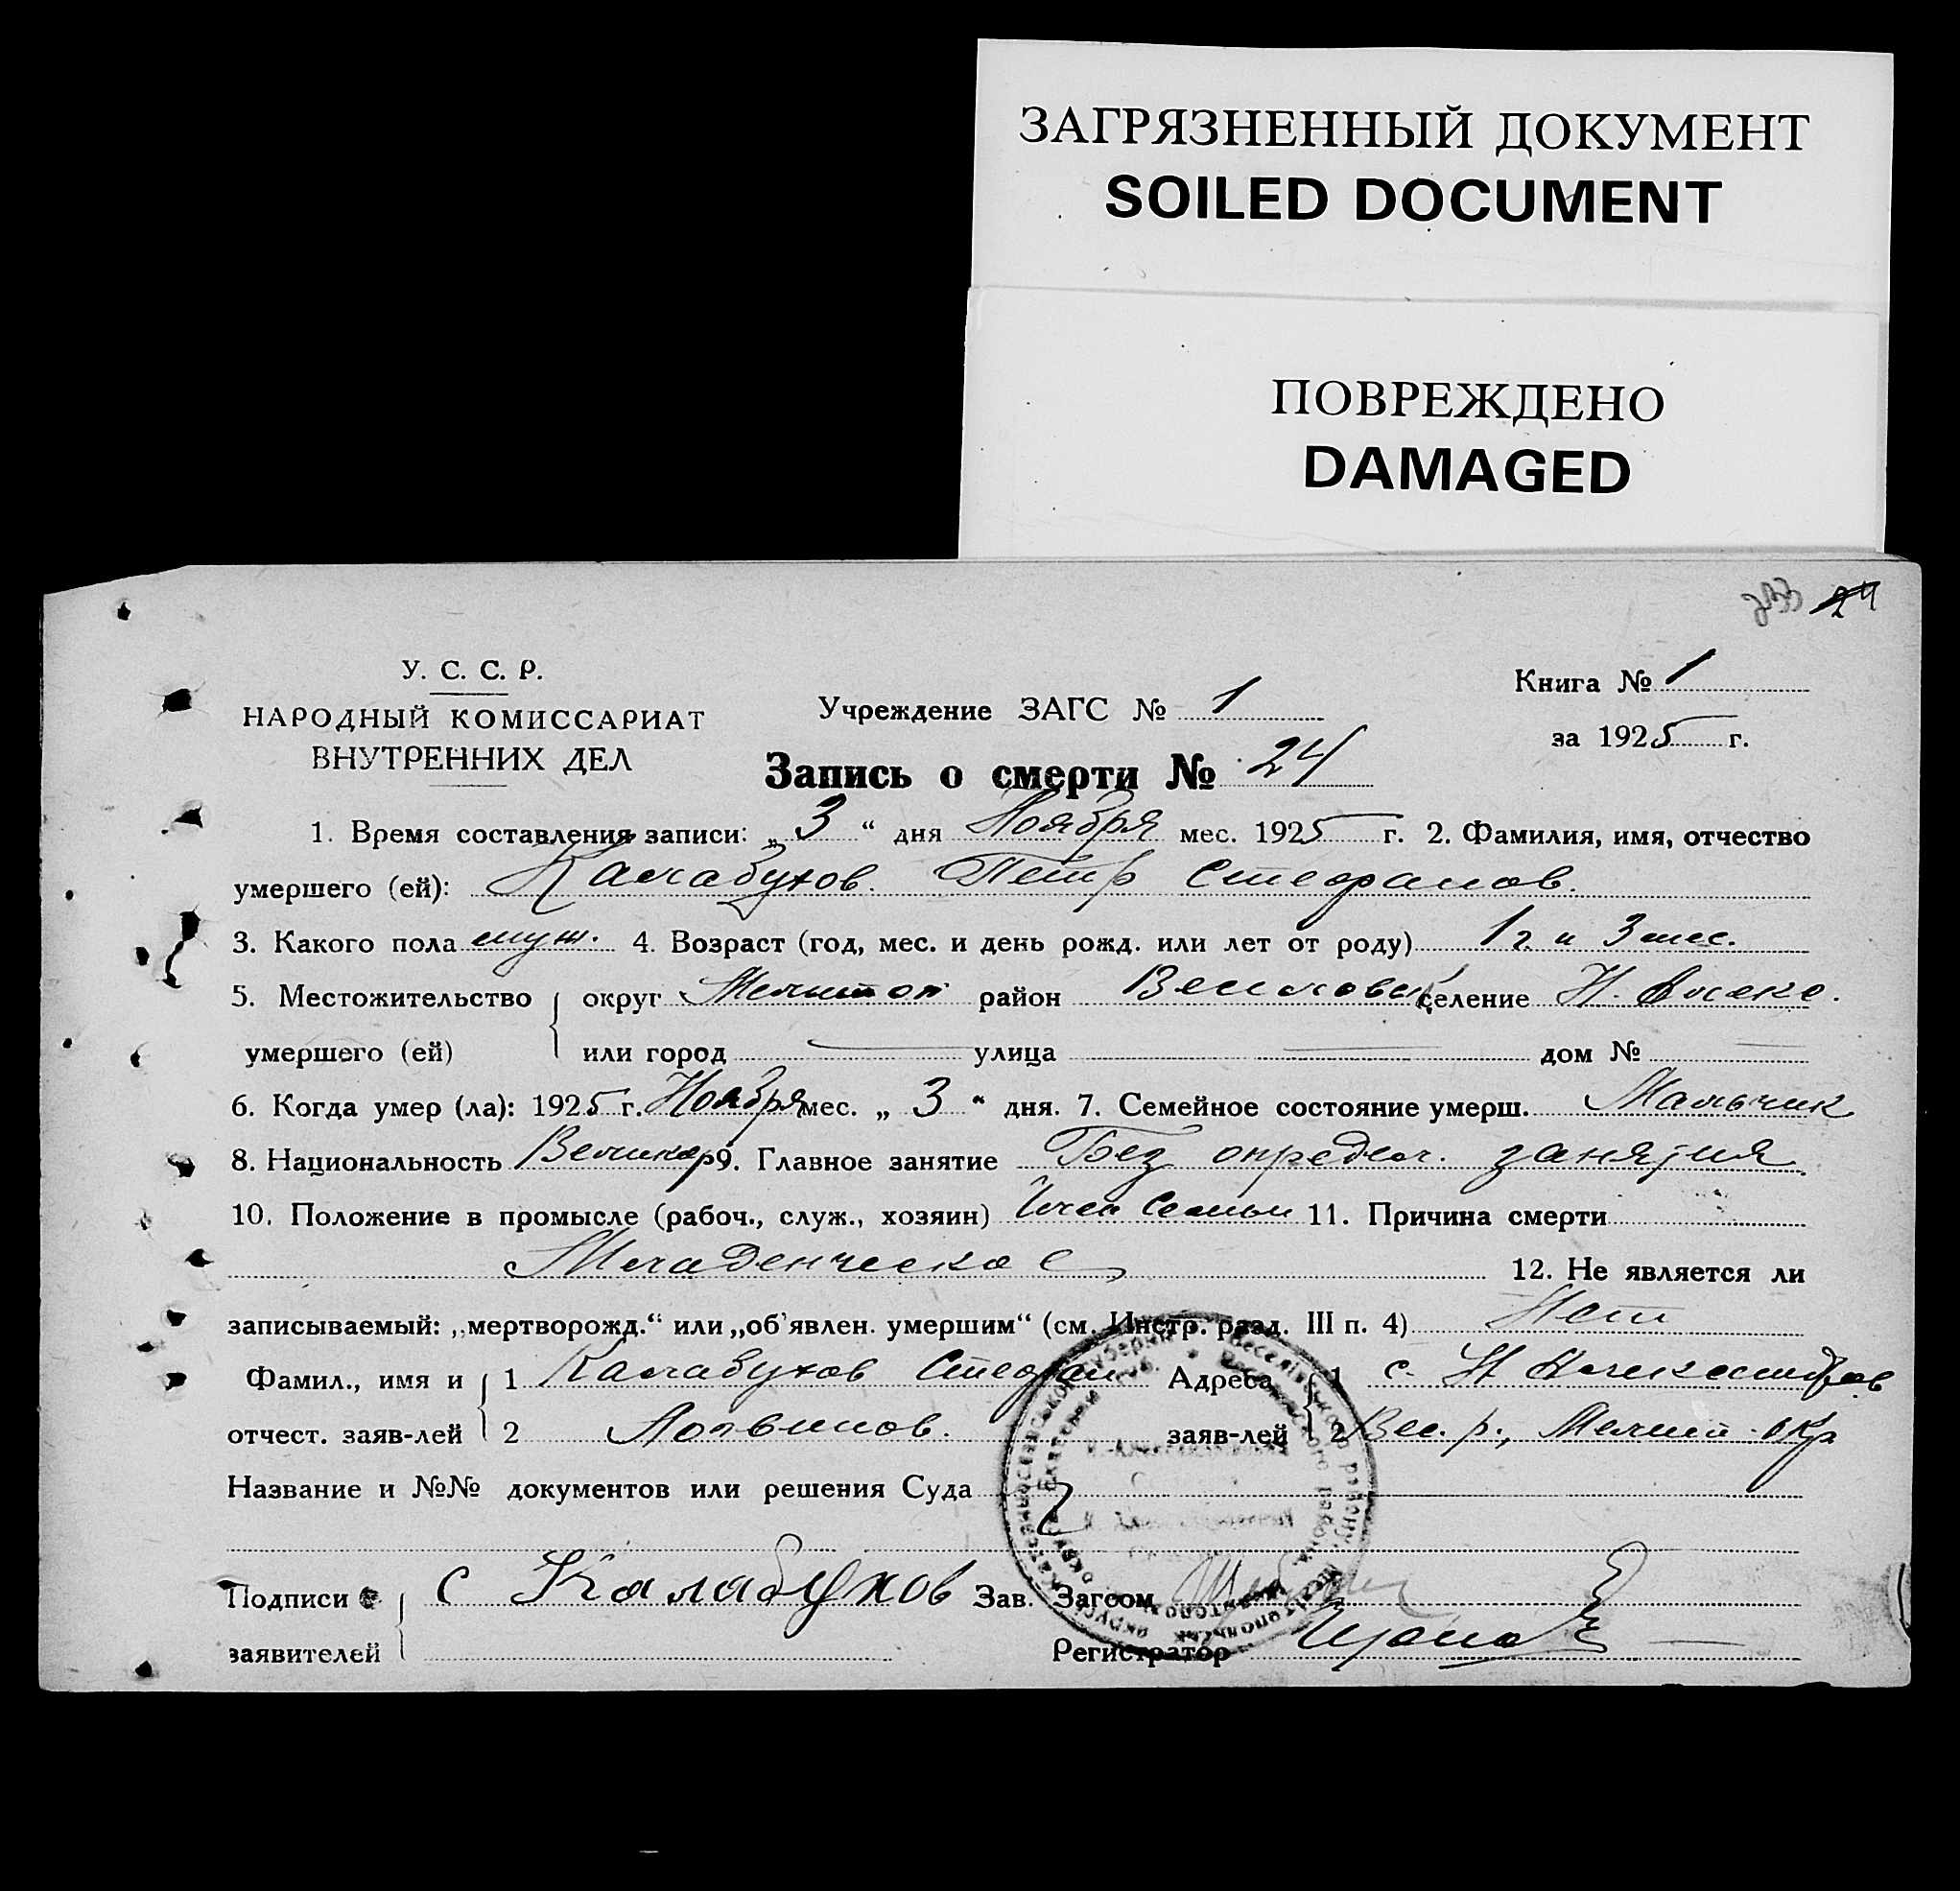 ЗАГРЯЗНЕННЫЙ ДОКУМЕНТ
SOILED DOCUMENT
ПОВРЕЖДЕНО
DAMAGED
24
У. С. С. Р.
НАРОДНЫЙ КОМИССАРИАТ
ВНУТРЕННИХ ДЕЛ
Учреждение ЗАГС № 1
Книга № 1
за 1925 г.
Запись о смерти № 24
1. Время составления записи: „ 3 “ дня Ноября мес. 1925 г. 2. Фамилия, имя, отчество
умершего (ей): Калабухов. Петр Стефанов.
3. Какого пола муж. 4. Возраст (год, мес. и день рожд. или лет от роду) 1 г. и 3 мес.
5. Местожительство округ Мелитоп район Веселовск селение Н.
умершего (ей) или город улица дом №
6. Когда умер (ла): 1925 г. Ноября мес. „ 3 “ дня. 7. Семейное состояние умерш. Мальчик
8. Национальность Великор 9. Главное занятие Без определ. занятия
10. Положение в промысле (рабоч., служ., хозяин) Член Семьи 11. Причина смерти
Младенческое 12. Не является ли
записываемый: „мертворожд.“ или „об'явлен. умершим“ (см. Инстр. разд. III п. 4) Нет
Фамил., имя и 1 Калабухов Стефан Адреса 1 с. Н Александров
отчест. заяв-лей 2 Логвинов. заяв-лей 2 Вес. р., Мелит. окр
Название и №№ документов или решения Суда
Подписи с Калабухов Зав. Загсом
заявителей Регистратор